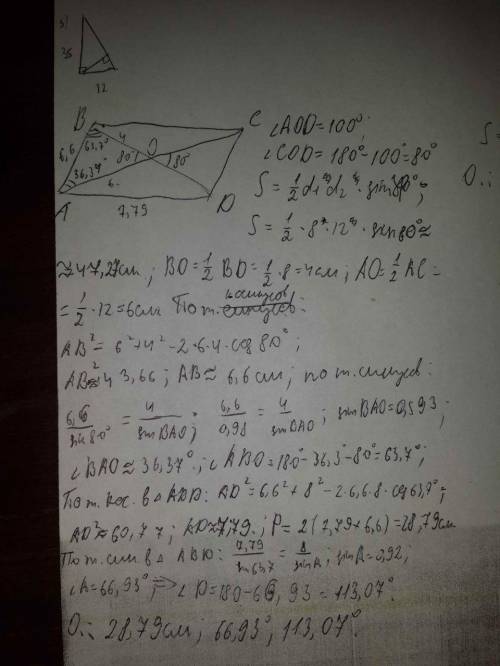 35
12
B
C
A
D
O
6,6
63,7°
4
80°
80°
36,37°
6
7,79
∠AOD=100°;
∠COD=180°-100°=80°
S=½d₁d₂·sin80°;
S=½·8·12·sin80°≈
≈47,27см; BO=½BD=½·8=4см; AO=½AC=
=½·12=6см По т. косинусов:
AB²=6²+4²-2·6·4·cos80°;
AB²≈43,66; AB≈6,6см; по т. синусов:
6,6/sin80°=4/sinBAO; 6,6/0,98=4/sinBAO; sinBAO=0,593;
∠BAO≈36,37°; ∠ABO=180°-36,3°-80°=63,7°;
По т. кос. в ΔABD: AD²=6,6²+8²-2·6,6·8·cos63,7°;
AD²≈60,77; AD≈7,79; P=2(7,79+6,6)=28,79см
По т. син в Δ ABD: 7,79/sin63,7=8/sinA; sinA=0,92;
∠A=66,93°; => ∠D=180-66,93=113,07°
О.: 28,79см; 66,93°; 113,07°.
S=
О.: